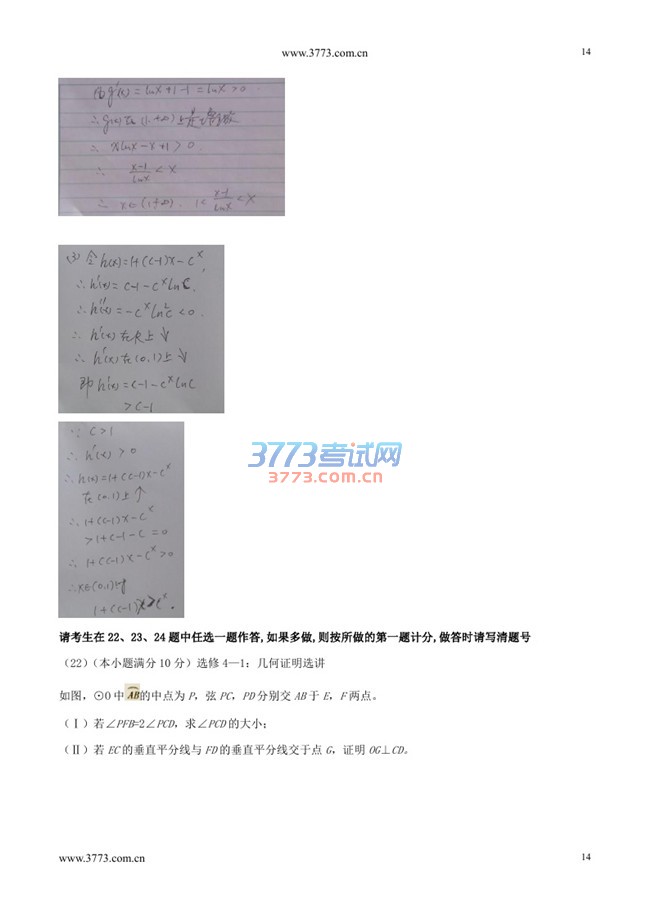 www.3773.com.cn
14
由g'(x)=lnx+1-1=lnx>0.
∴g(x)在(1,+∞)上是增函数
∴ xlnx-x+1>0
∴ (x-1)/lnx<x
∴ x∈(1,+∞). 1<(x-1)/lnx<x
(3)令h(x)=1+(c-1)x-c^x,
∴h'(x)=c-1-c^xlnc.
∴h''(x)=-c^xln²c<0.
∴h'(x)在R上↓
∴h'(x)在(0,1)上↓
即h'(x)=c-1-c^xlnc
>c-1
∵ c>1
∴h'(x)>0
∴h(x)=1+(c-1)x-c^x
在(0,1)上↑
∴1+(c-1)x-c^x
>1+c-1-c=0
∴1+(c-1)x-c^x>0
∴x∈(0,1)时
1+(c-1)x>c^x.
3773考试网
3773.com.cn
请考生在 22、23、24 题中任选一题作答,如果多做,则按所做的第一题计分,做答时请写清题号
（22）（本小题满分 10 分）选修 4—1：几何证明选讲
如图，⊙O 中AB的中点为 P，弦 PC，PD 分别交 AB 于 E，F 两点。
（Ⅰ）若∠PFB=2∠PCD，求∠PCD 的大小；
（Ⅱ）若 EC 的垂直平分线与 FD 的垂直平分线交于点 G，证明 OG⊥CD。
www.3773.com.cn
14